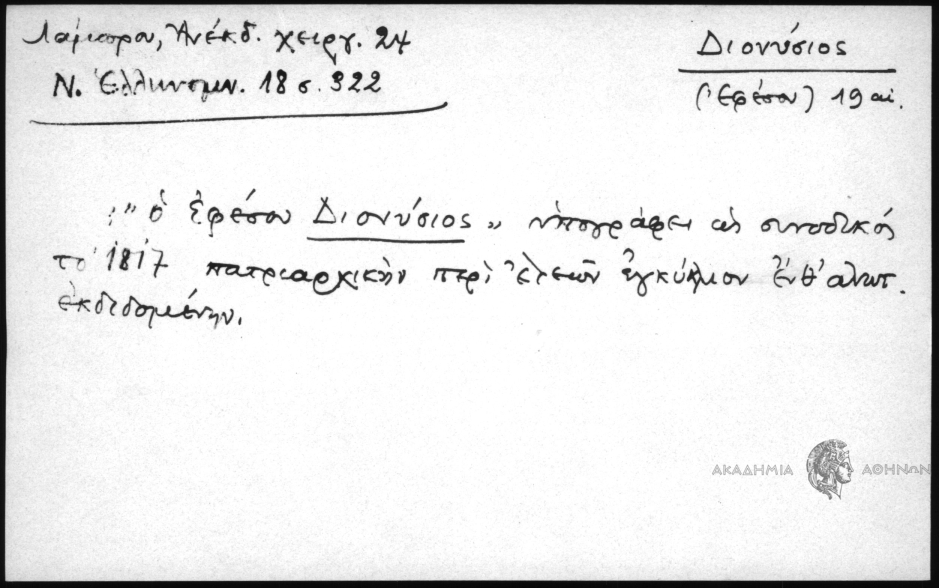 Λάμπρου, Ἀνέκδ. χειργ. 24
Ν. Ἑλληνομν. 18 σ. 322
Διονύσιος
(Ἐφέσου) 19 αἰ.
" ὁ Ἐφέσου Διονύσιος " ὑπογράφει ὡς συνοδικός
τὸ 1817 πατριαρχικὴν περὶ ἐλεῶν ἐγκύκλιον ἐνθ' ἀνωτ.
ἐκδεδομένην.
ΑΚΑΔΗΜΙΑ ΑΘΗΝΩΝ